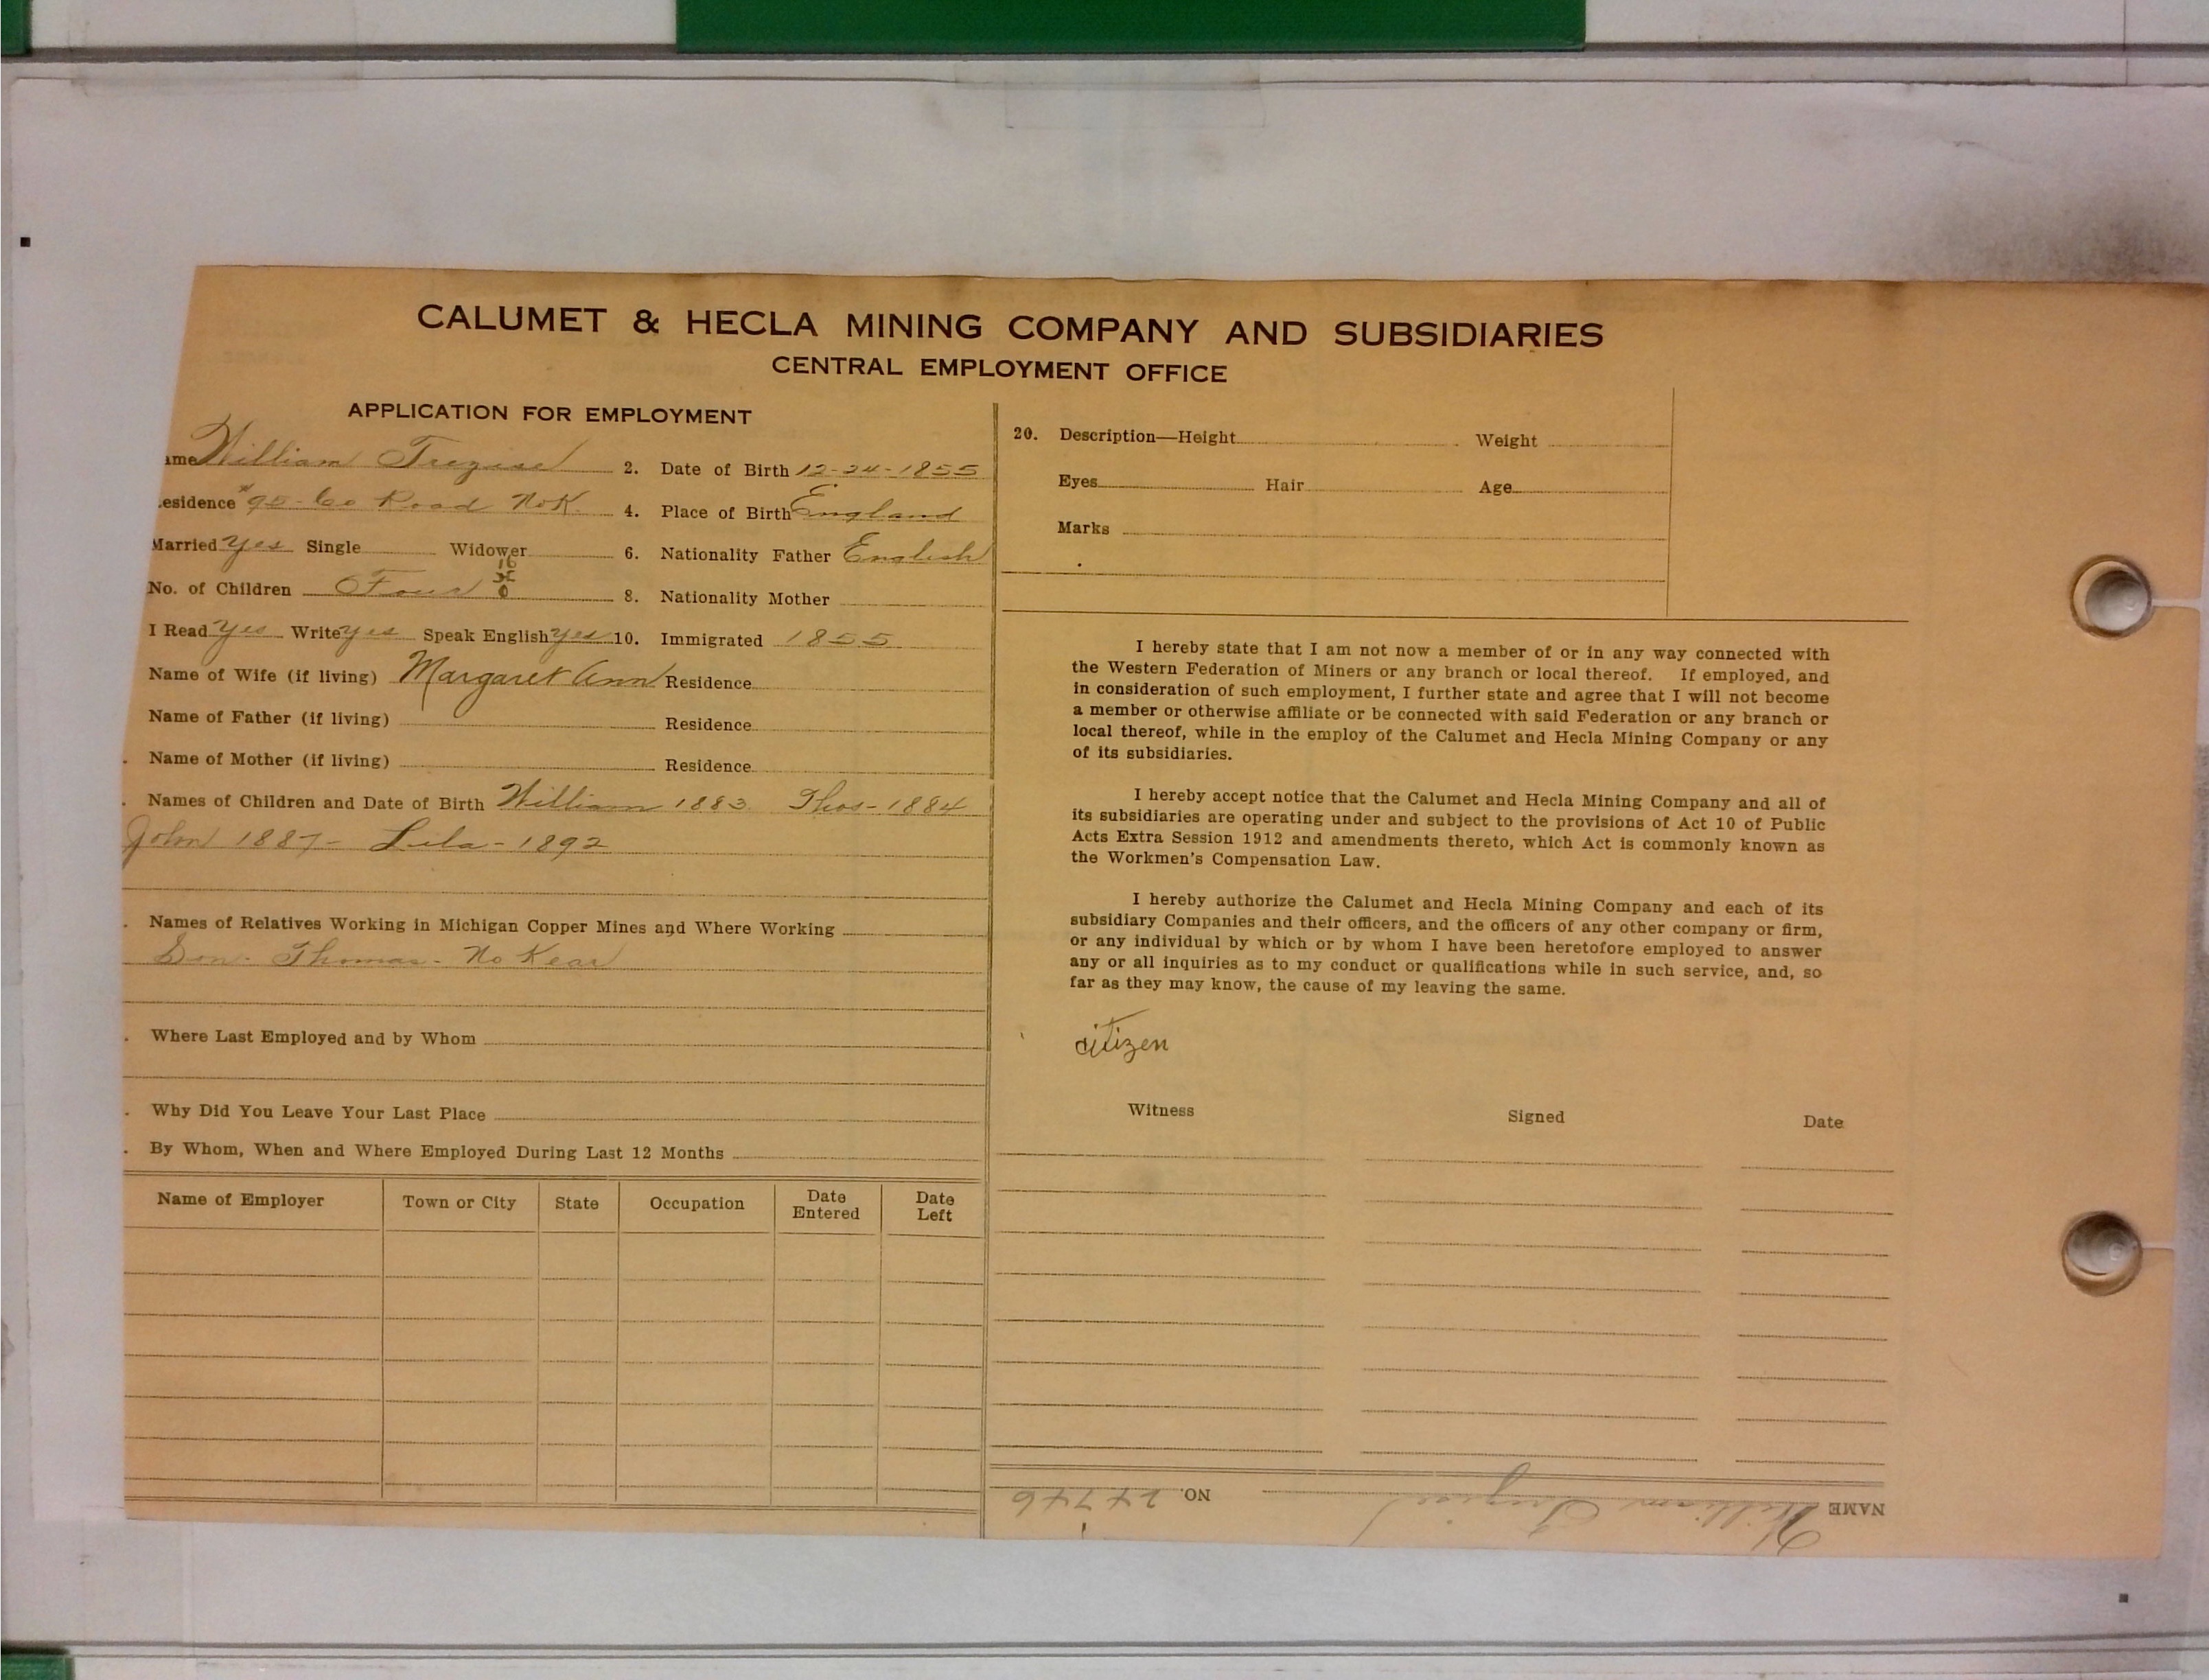 CALUMET & HECLA MINING COMPANY AND SUBSIDIARIES
CENTRAL EMPLOYMENT OFFICE
APPLICATION FOR EMPLOYMENT
ame William Trezise 2. Date of Birth 12-24-1855
esidence #95- Co Road No K. 4. Place of Birth England
Married yes Single Widower 6. Nationality Father English
No. of Children Four 8. Nationality Mother
I Read yes Write yes Speak English yes 10. Immigrated 1855
Name of Wife (if living) Margaret Ann Residence
Name of Father (if living) Residence
. Name of Mother (if living) Residence
. Names of Children and Date of Birth William 1883 Thos- 1884
John 1887- Lila- 1892
. Names of Relatives Working in Michigan Copper Mines and Where Working
Son- Thomas- No Kear
. Where Last Employed and by Whom
. Why Did You Leave Your Last Place
. By Whom, When and Where Employed During Last 12 Months
Name of Employer Town or City State Occupation Date Entered Date Left
20. Description—Height Weight
Eyes Hair Age
Marks
I hereby state that I am not now a member of or in any way connected with
the Western Federation of Miners or any branch or local thereof. If employed, and
in consideration of such employment, I further state and agree that I will not become
a member or otherwise affiliate or be connected with said Federation or any branch or
local thereof, while in the employ of the Calumet and Hecla Mining Company or any
of its subsidiaries.
I hereby accept notice that the Calumet and Hecla Mining Company and all of
its subsidiaries are operating under and subject to the provisions of Act 10 of Public
Acts Extra Session 1912 and amendments thereto, which Act is commonly known as
the Workmen's Compensation Law.
I hereby authorize the Calumet and Hecla Mining Company and each of its
subsidiary Companies and their officers, and the officers of any other company or firm,
or any individual by which or by whom I have been heretofore employed to answer
any or all inquiries as to my conduct or qualifications while in such service, and, so
far as they may know, the cause of my leaving the same.
citizen
Witness Signed Date
NAME William Trezise NO. 24746